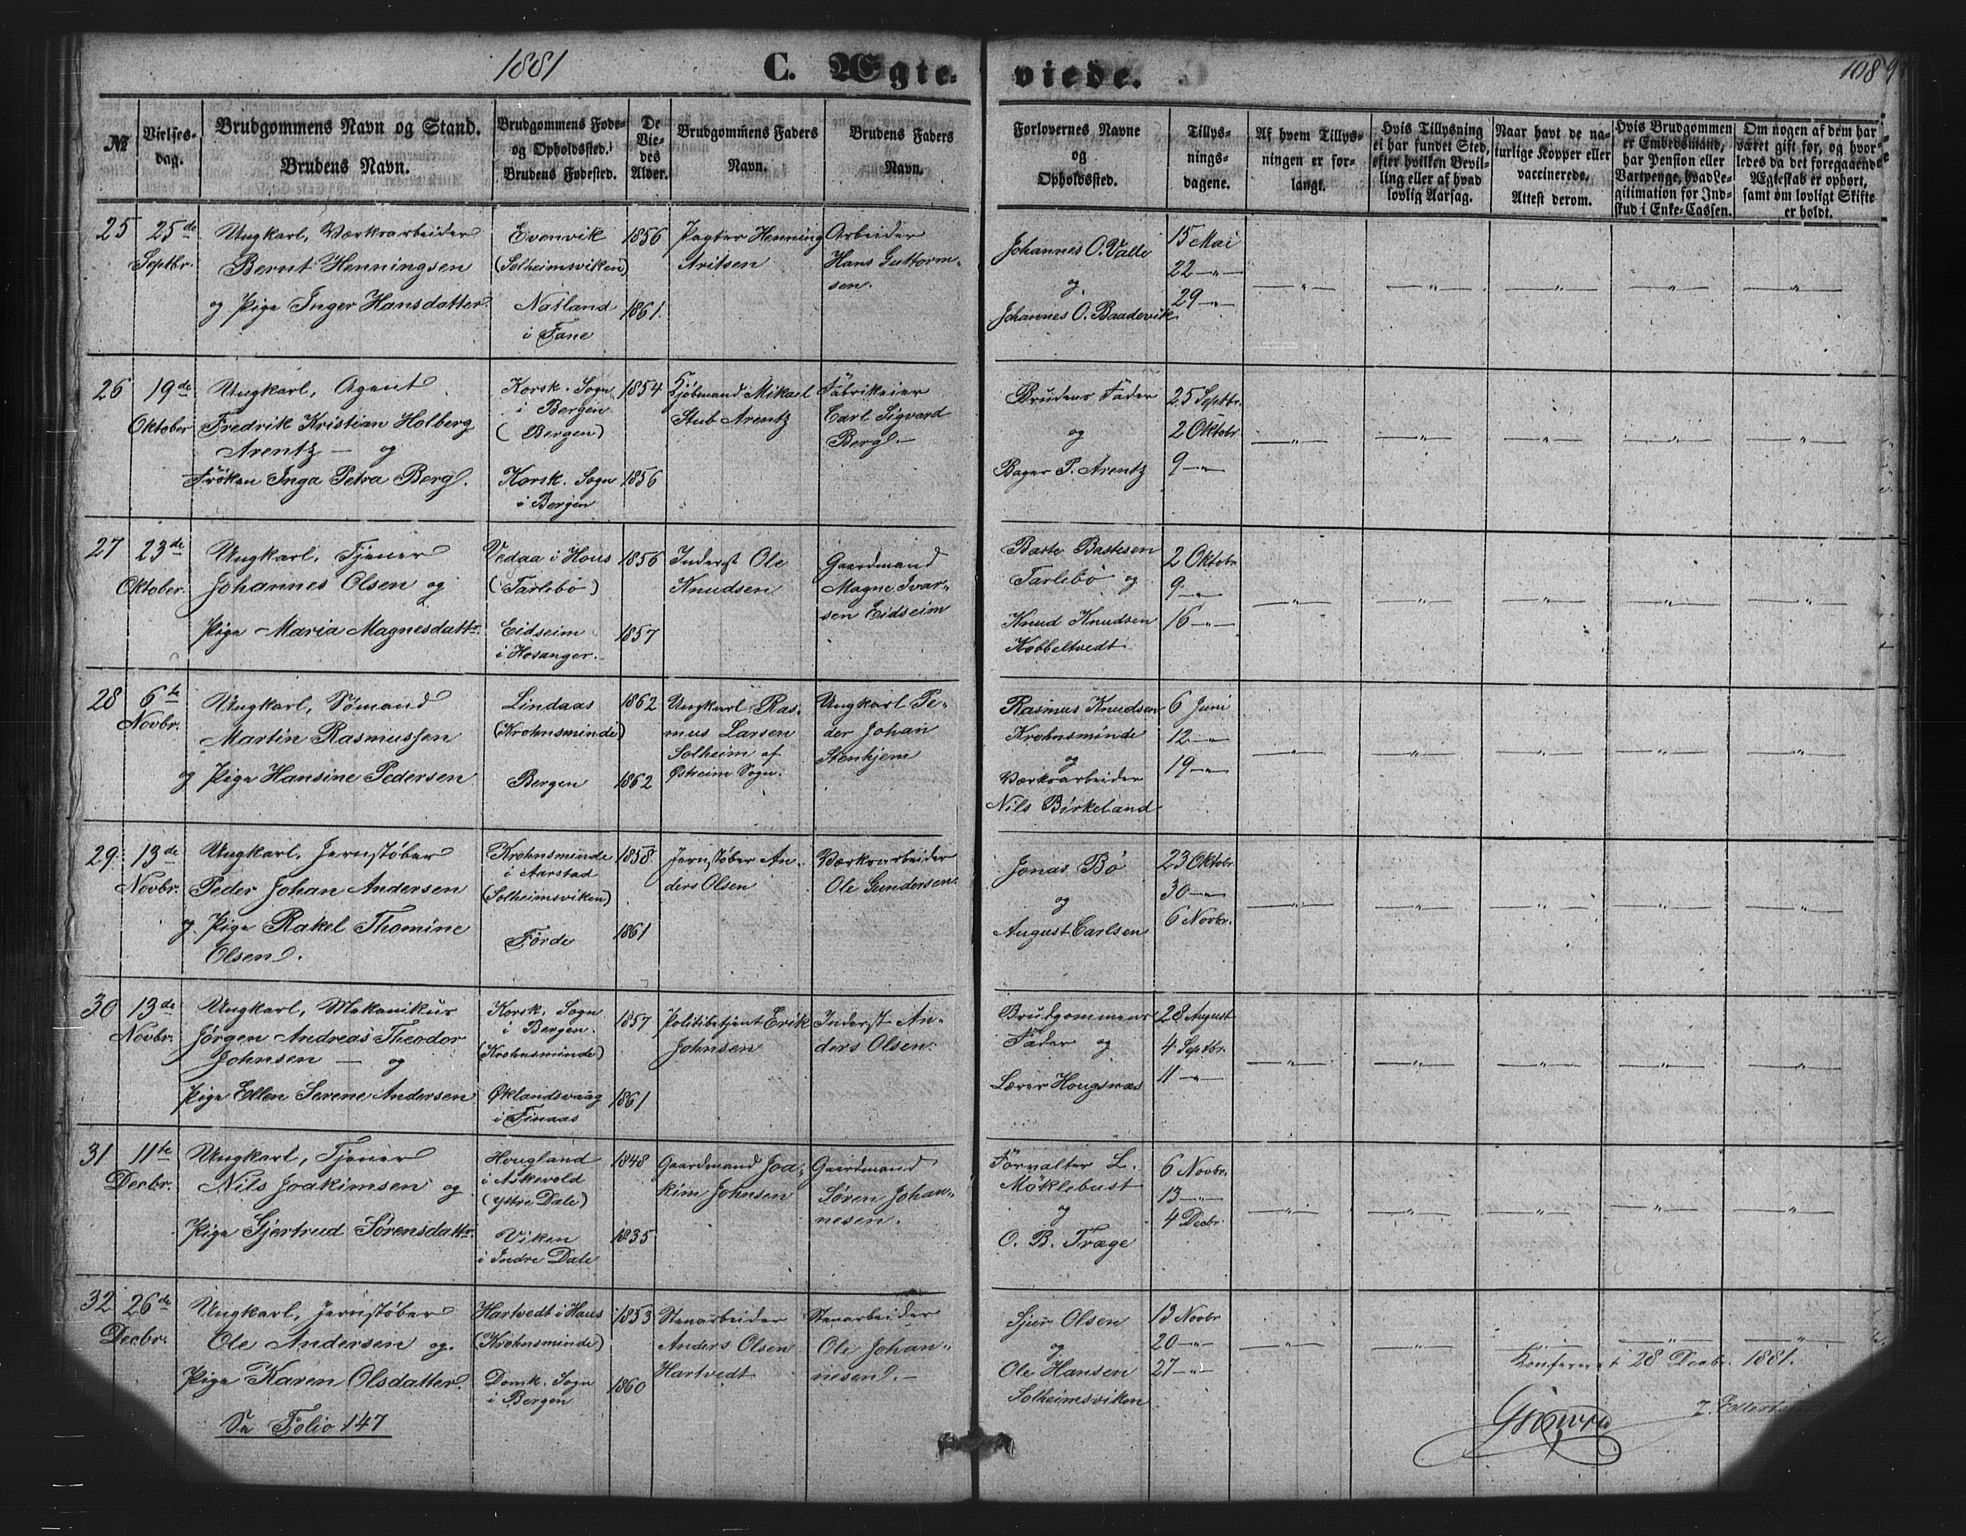 1881
C. Ægte-
viede.
108
№
Vielses-
dag.
Brudgommens Navn og Stand.
Brudens Navn.
Brudgommens Føde-
og Opholdssted.
Brudens Fødested.
De
Vie-
des
Alder.
Brudgommens Faders
Navn.
Brudens Faders
Navn.
Forlovernes Navne
og
Opholdssted.
Tillys-
nings-
dagene.
Af hvem Tillys-
ningen er for-
langt.
Hvis Tillysning
ei har fundet Sted,
efter hvilken Bevil-
ling eller af hvad
lovlig Aarsag.
Naar havt de na-
turlige Kopper eller
vaccinerede.
Attest derom.
Hvis Brudgommen
er Embedsmand,
har Pension eller
Vartpenge, hvad Le-
gitimation for Ind-
skud i Enke-Cassen.
Om nogen af dem har
været gift før, og hvor-
ledes da det foregaaende
Ægteskab er ophørt,
samt om lovligt Skifte
er holdt.
25
25de
Septbr.
Ungkarl, Værksarbeider
Bernt Henningsen
og Pige Inger Hansdatter
Evenvik
(Solheimsviken)
Natland
i Fane
1856
1861.
Pagter Henning
Aritsen
Arbeider
Hans Guttorm-
sen.
Johannes O. Valle
og
Johannes O. Baadevik
15 Mai
22 — " —
29 — " —
26
19de
Oktober
Ungkarl, Agent
Fredrik Kristian Holberg
Arentz — og
Frøken Inga Petra Berg.
Korsk. Sogn
i Bergen
(Bergen)
Korsk. Sogn
i Bergen
1854
1856
Kjøbmand Mikael
Stub Arentz
Fabrikeier
Carl Sigvard
Berg. —
Brudens Fader
og
Bager P. Arentz
25 Septbr.
2 Oktobr
9 — " —
27
23de
Oktober.
Ungkarl, Tjener
Johannes Olsen og
Pige Maria Magnesdattr.
Vedaa i Hous
(Tarlebø)
Eidseim
i Hosanger.
1856
1857
Inderst Ole
Knudsen
Gaardmand
Magne Ivar-
sen Eidseim
Baste Bastesen
Tarlebø og
Knud Knudsen
Kobbeltvedt
2 Oktobr
9 — " —
16 — " —
28
6te
Novbr.
Ungkarl, Sømand
Martin Rasmussen
og Pige Hansine Pedersen
Lindaas
(Krohnsminde)
Bergen
1862
1862
Ungkarl Ras-
mus Larsen
Solheim af
Østheim Sogn.
Ungkarl Pe-
der Johan
Stenkjem
Rasmus Knudsen
Krohnsminde
og
Værksarbeider
Nils Birkeland
6 Juni
12 — " —
19 — " —
29.
13de
Novbr.
Ungkarl, Jernstøber
Peder Johan Andersen
og Pige Rakel Thomine
Olsen.
Krohnsminde
i Aarstad
(Solheimsviken)
Førde
1858.
1861
Jernstøber An-
ders Olsen
Værksarbeider
Ole Gundersen.
Jonas Bø
og
August Carlsen
23 Oktobr.
30 — " —
6 Novbr.
30
13de
Novbr.
Ungkarl, Mekanikus
Jørgen Andreas Theodor
Johnsen — og
Pige Ellen Serene Andersen
Korsk. Sogn
i Bergen.
(Krohnsminde)
Øklandsvaag
i Finaas
1857
1861
Politibetjent Erik
Johnsen
Inderst An-
ders Olsen.
Brudgommens
Fader og
Lærer Hougsnæs
28 August
4 Septbr.
11 — " —
31
11te
Decbr.
Ungkarl, Tjener
Nils Joakimsen og
Pige Gjertrud Sørensdattr.
Hougland
i Askevold
(Yttre Dale)
Viken
i Indre Dale
1848
1835
Gaardmand Joa-
kim Johnsen
Gaardmand
Søren Johan-
nesen.
Forvalter L.
Møklebust
og
O. B. Træge
6 Novbr.
13 — " —
4 Decbr.
32
26de
Decbr.
Ungkarl, Jernstøber
Ole Andersen og
Pige Karen Olsdatter.
Hartvedt i Haus
(Krohnsminde)
Domk. Sogn
i Bergen
1853
1860
Stenarbeider
Anders Olsen
Hartvedt
Stenarbeider
Ole Johan-
nesen. —
Sjur Olsen
og
Ole Hansen
Solheimsviken
13 Novbr
20 — " —
27 — " —
Konfereret 28 Decbr. 1881.
Se Folio 147